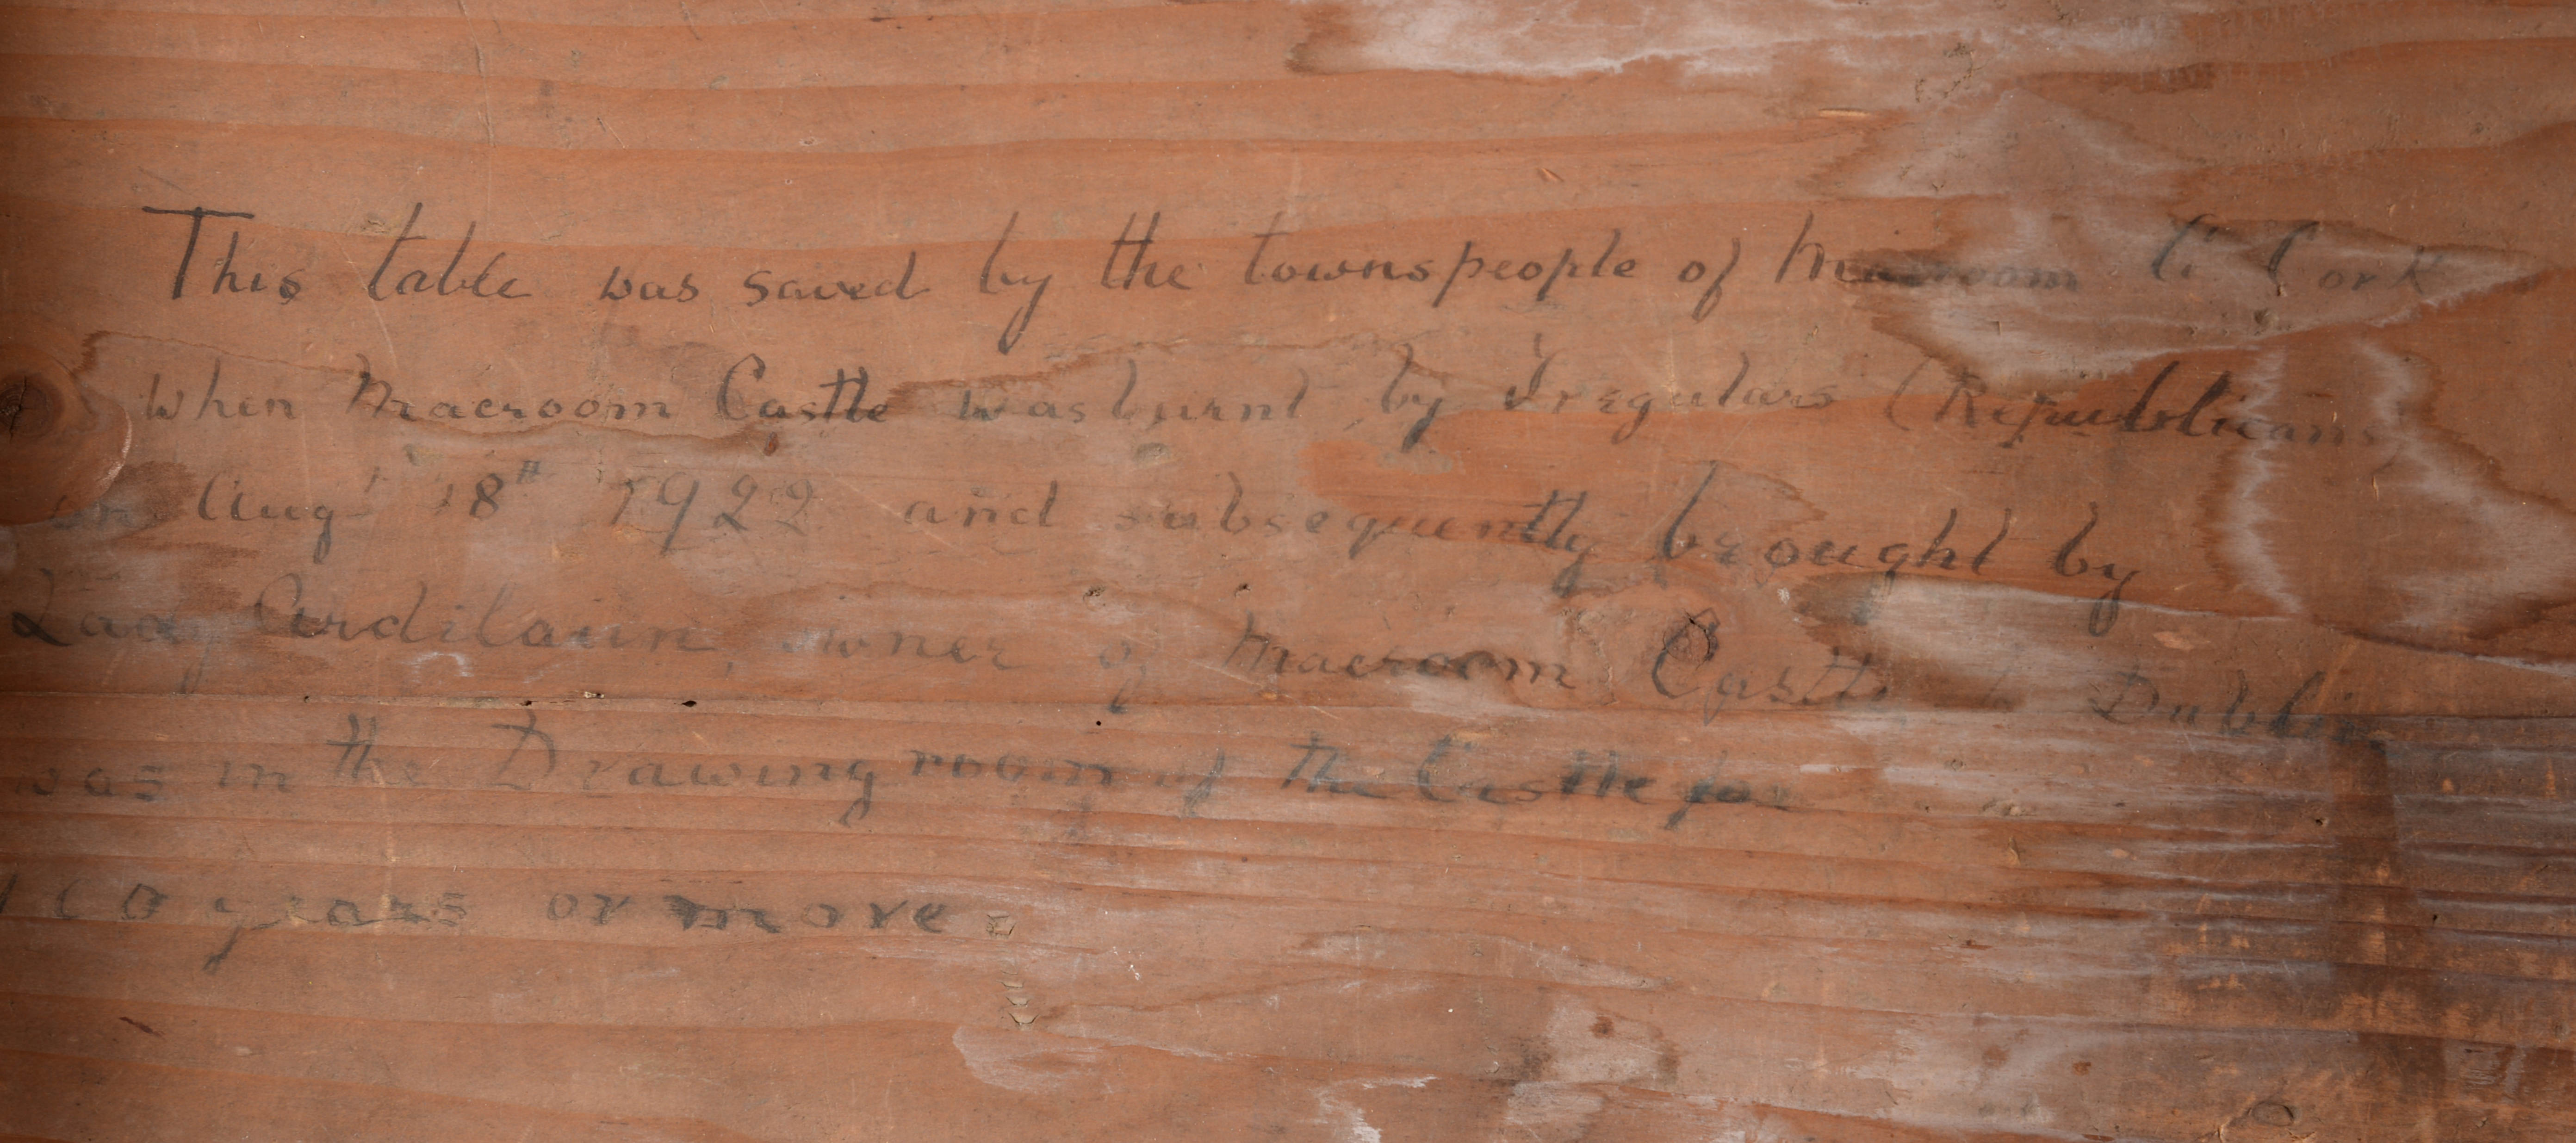 This table was saved by the townspeople of Macroom Co Cork
when Macroom Castle was burnt by Irregulars (Republicans)
on Aug 18th 1922 and subsequently brought by
Lady Ardilaun, owner of Macroom Castle, Dublin
was in the Drawing room of the Castle for
100 years or more.